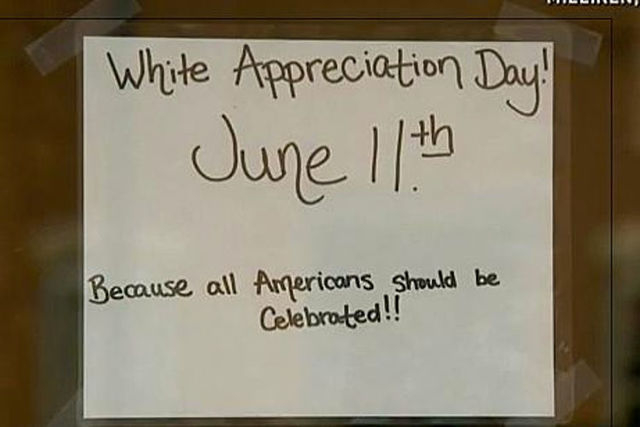 White Appreciation Day!
June 11th.
Because all Americans should be
Celebrated!!